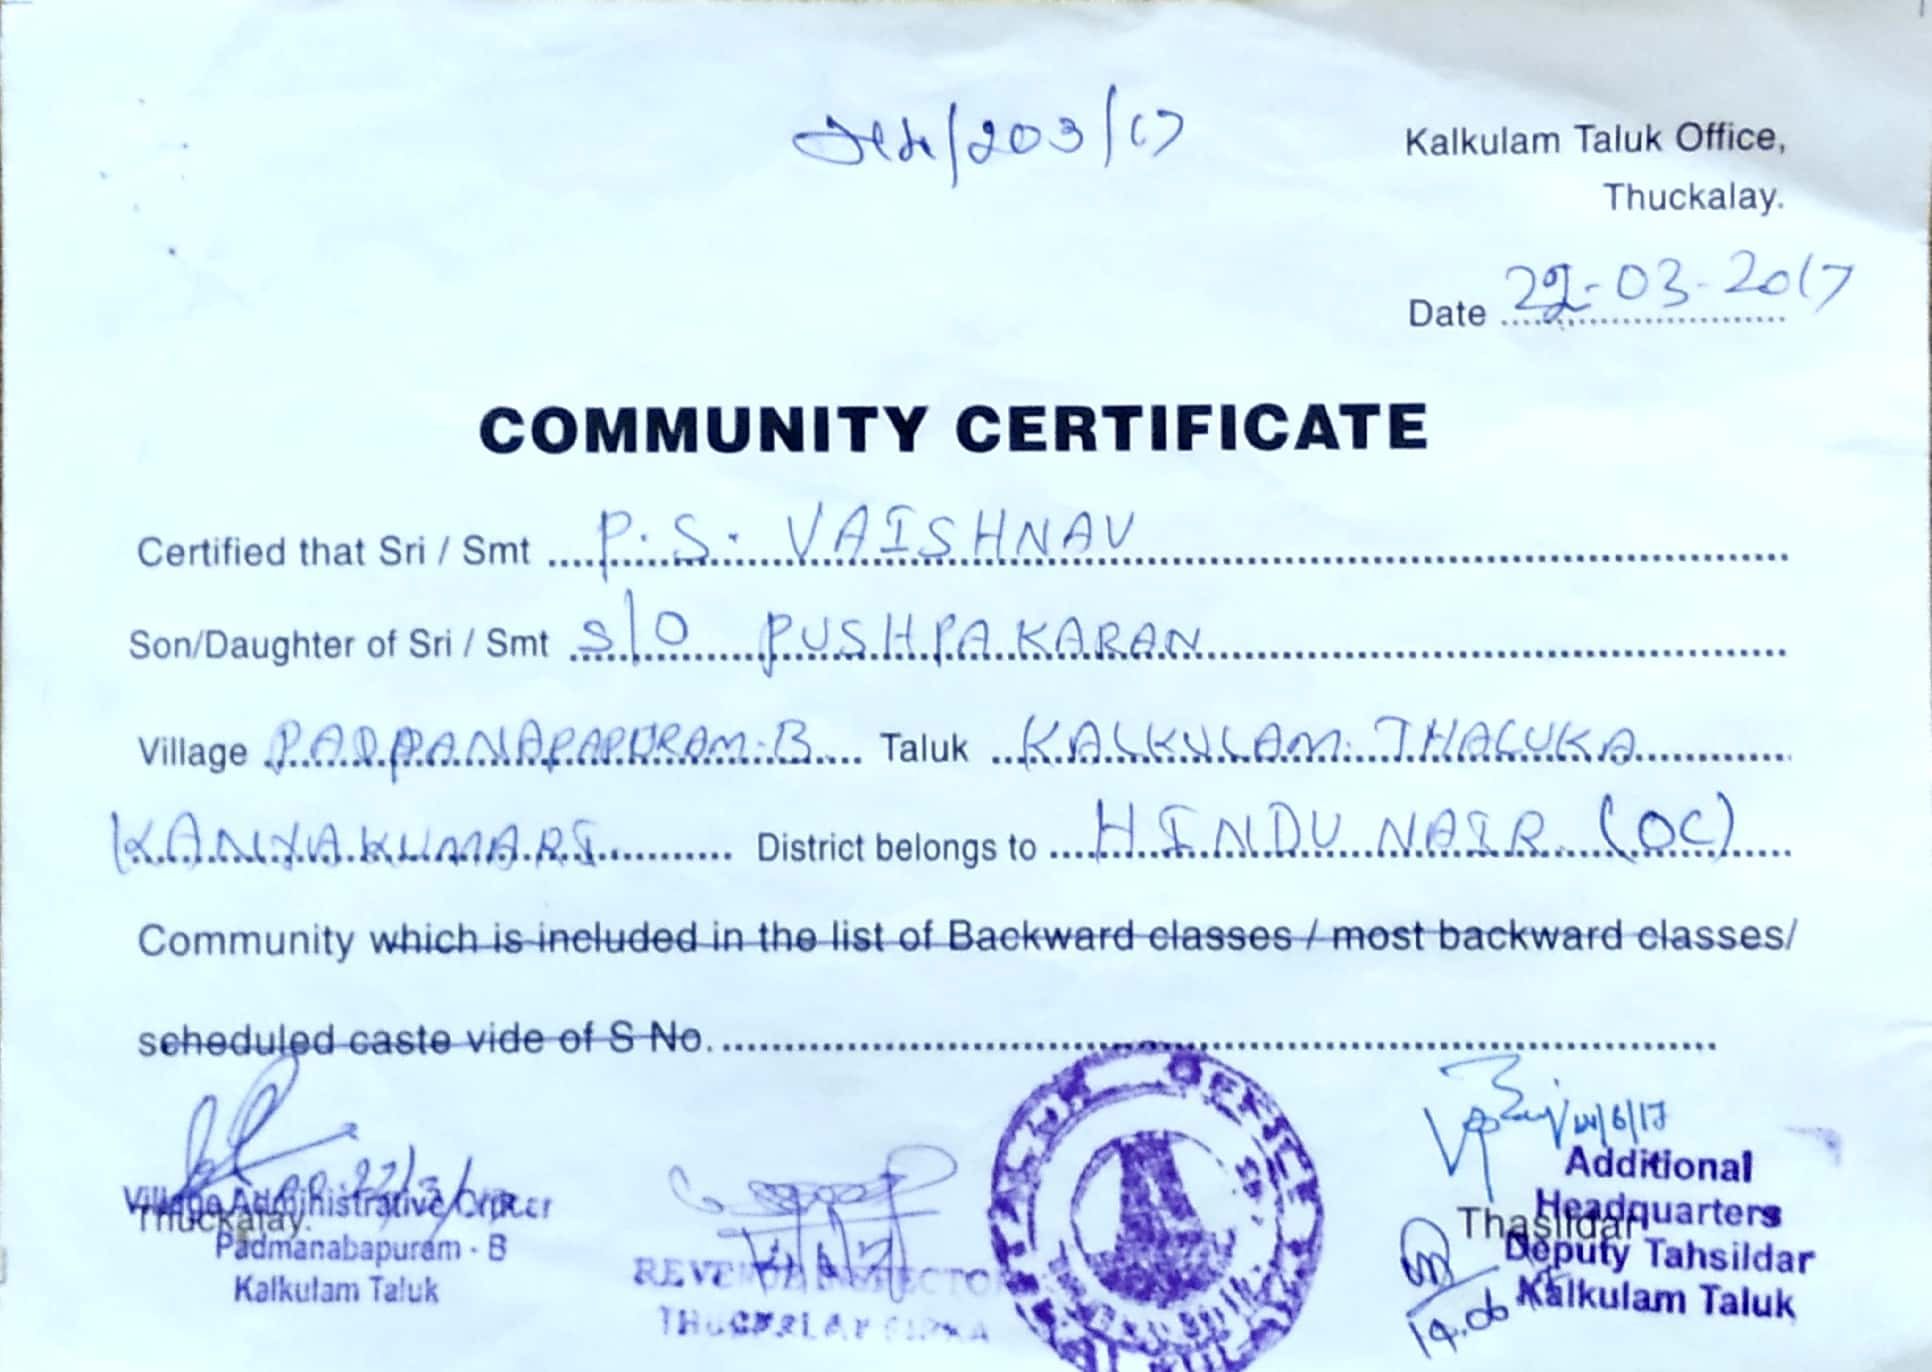 /203/17
Kalkulam Taluk Office,
Thuckalay.
Date 22-03-2017
COMMUNITY CERTIFICATE
Certified that Sri / Smt P. S. VAISHNAV
Son/Daughter of Sri / Smt S/O PUSHPAKARAN
Village Taluk KALKULAM THALUKA
KANYAKUMARI District belongs to HINDU NAIR (OC)
Community which is included in the list of Backward classes / most backward classes/
scheduled caste vide of S No.
Village Administrative Officer
Thuckalay.
Padmanabapuram - B
Kalkulam Taluk
REVENUE INSPECTOR
THUCKALAY FIRKA
TALUK OFFICE
Additional
Headquarters
Thasildar
Deputy Tahsildar
Kalkulam Taluk